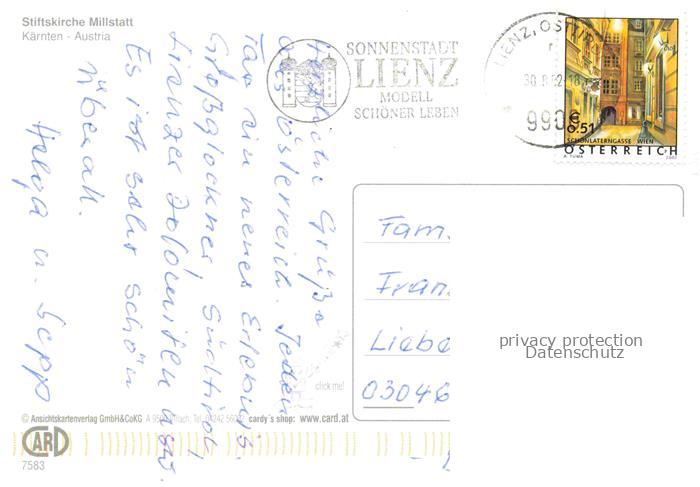 Stiftskirche Millstatt
Kärnten - Austria
SONNENSTADT
LIENZ
MODELL
SCHÖNER LEBEN
LIENZ, OSTTIR
9900
€
0.51
SCHÖNLATERNGASSE WIEN
ÖSTERREICH
A. TUMA 2002
Herzliche Grüße
aus Österreich. Jeden
Tag ein neues Erlebnis.
Großglockner, Südtirol,
Lienzer Dolomiten usw.
Es ist sehr schön
überall.
Helga u. Sepp
Fam.
Fran
Liebe
03046
privacy protection
Datenschutz
click me!
© Ansichtskartenverlag GmbH&CoKG cardy´s shop: www.card.at
CARD
7583